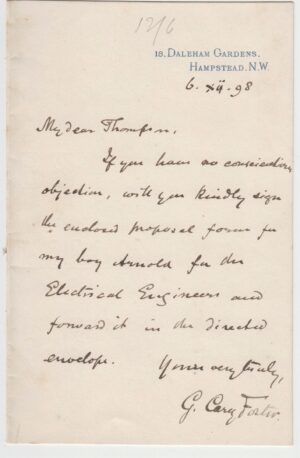 12/6
18, DALEHAM GARDENS,
HAMPSTEAD. N.W.
6. xii. 98
My dear Thompson,
If you have no conscientious
objection, will you kindly sign
the enclosed proposal form for
my boy Arnold for the
Electrical Engineers and
forward it in the directed
envelope.
Yours very truly,
G. Carey Foster